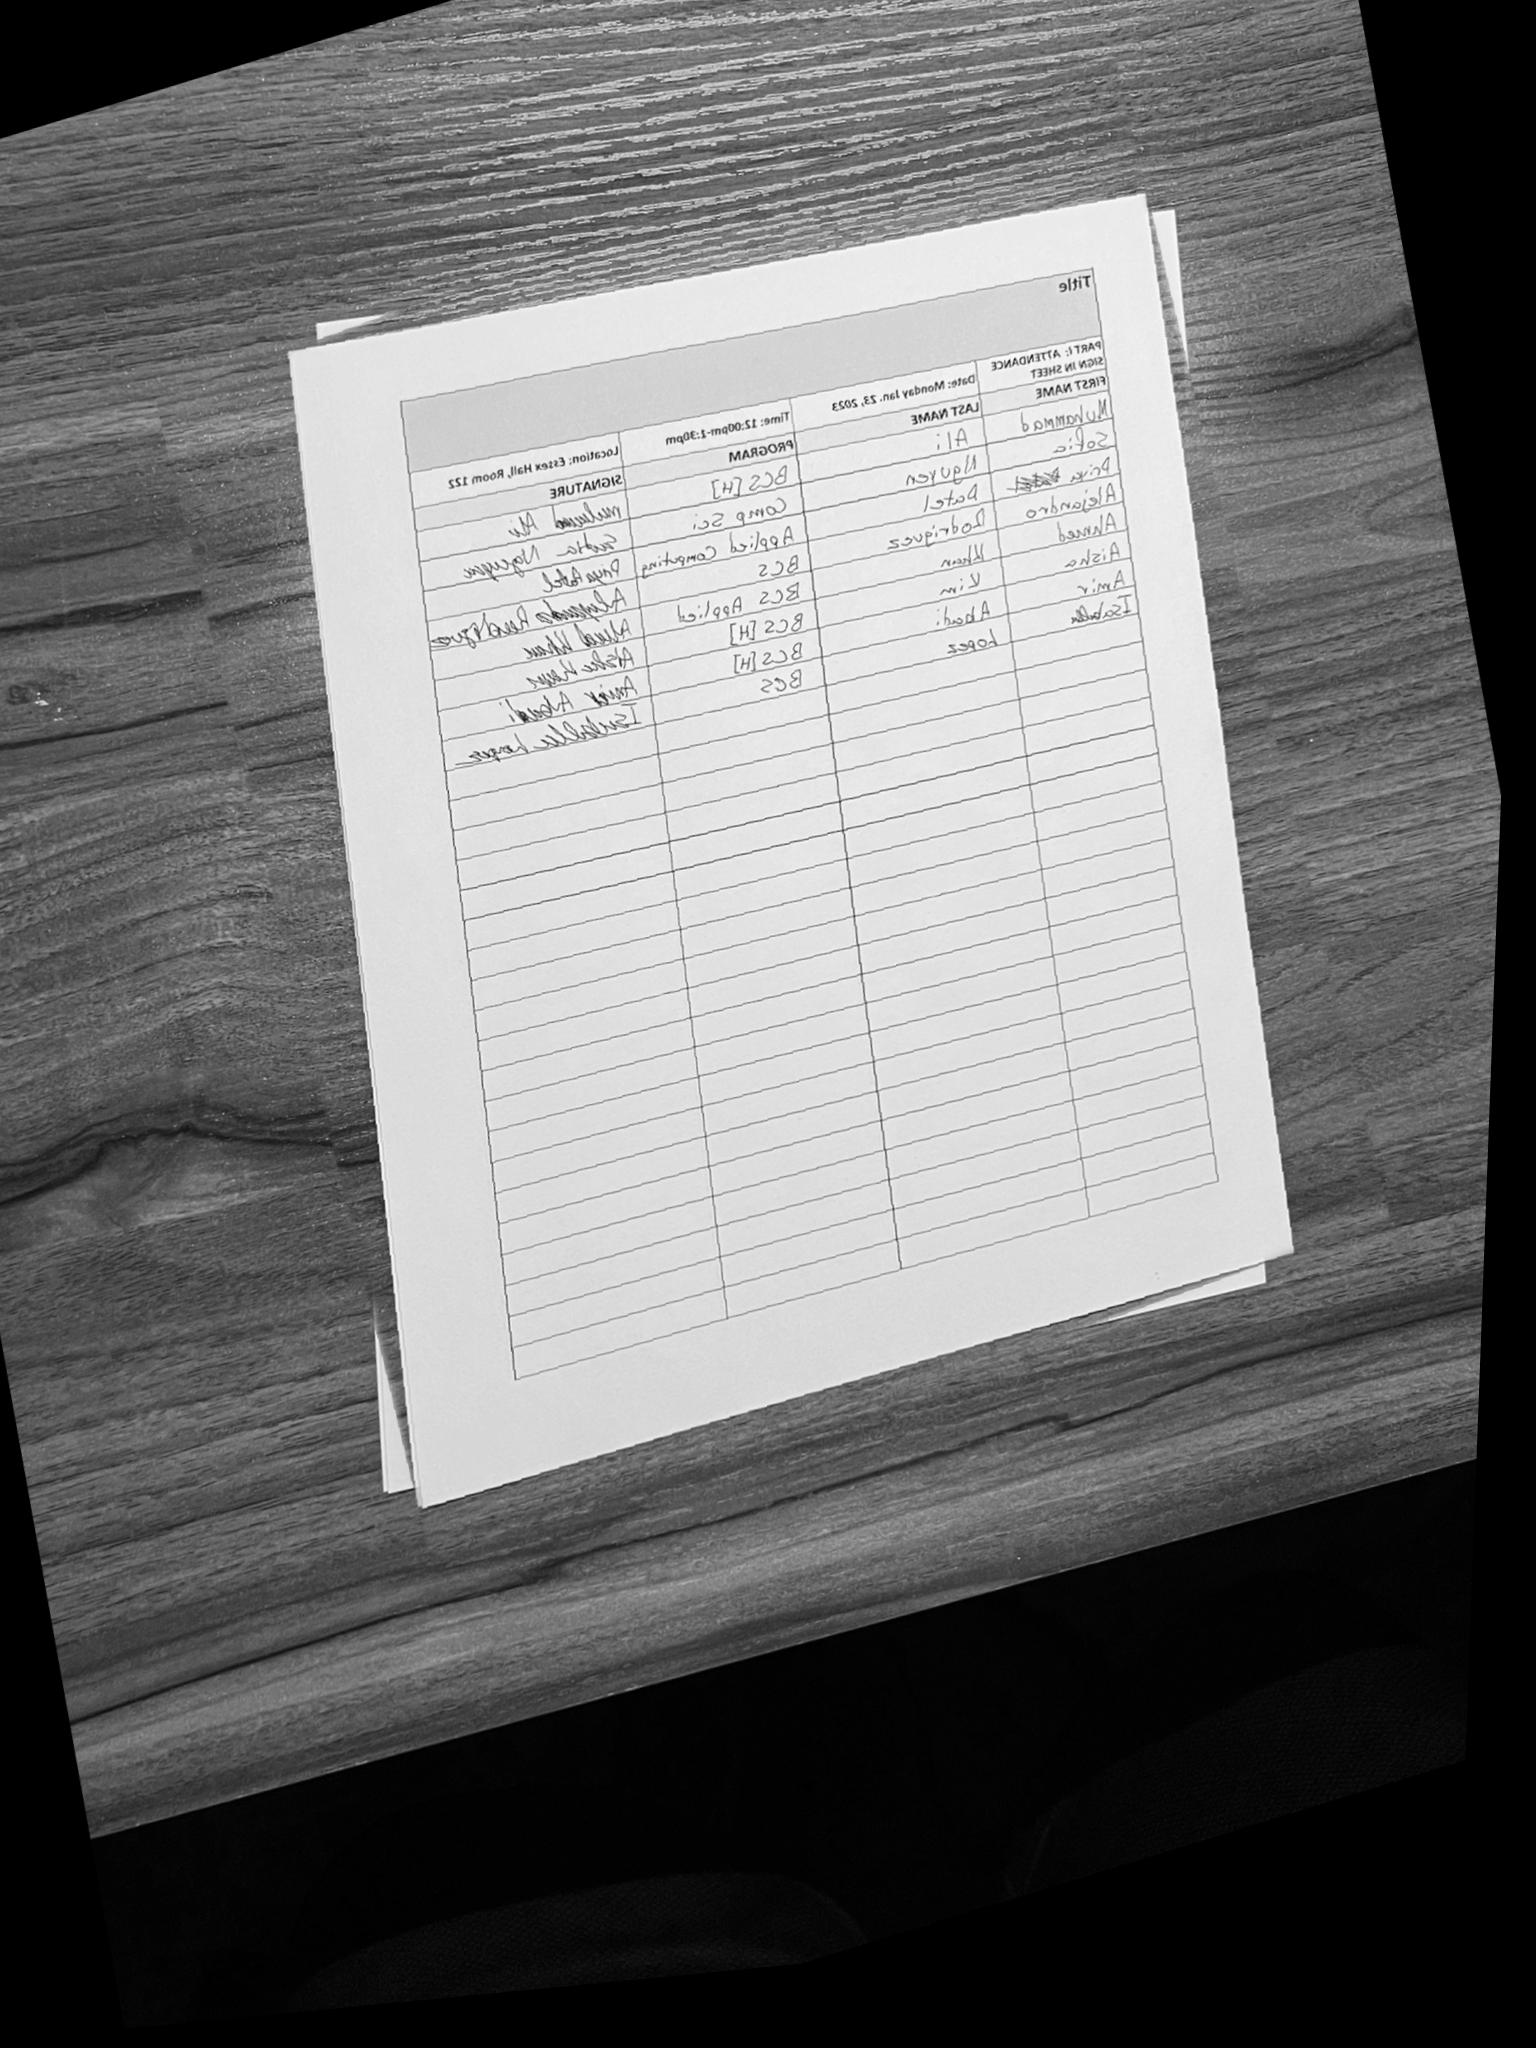 Title
PART I: ATTENDANCE SIGN IN SHEET Date: Monday Jan. 23, 2023 Time: 12:00pm-1:30pm Location: Essex Hall, Room 122
FIRST NAME LAST NAME PROGRAM SIGNATURE
Muhammad Ali BCS [H] Ali
Sofia Nguyen Comp Sci Nguyen
Priya Patel Applied Computing Priya Patel
Alejandro Rodriguez BCS Alejandro Rodriguez
Ahmed Khan BCS Applied Ahmed Khan
Aisha Kim BCS [H] Aisha
Amir Abadi BCS [H] Amir Abadi
Isabella Lopez BCS Isabella Lopez